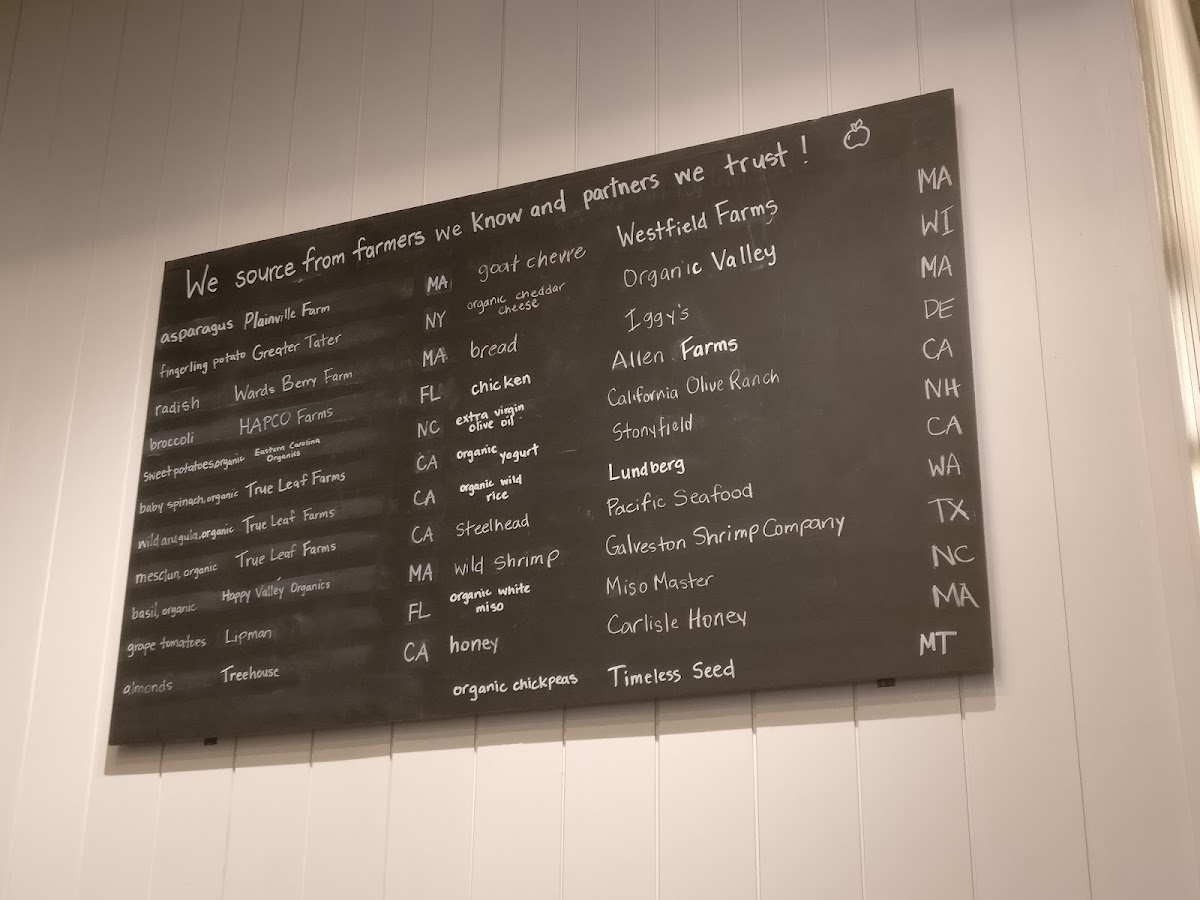 We source from farmers we know and partners we trust!
asparagus Plainville Farm MA
fingerling potato Greater Tater NY
radish Wards Berry Farm MA
broccoli HAPCO Farms FL
sweet potatoes, organic Eastern Carolina Organics NC
baby spinach, organic True Leaf Farms CA
wild arugula, organic True Leaf Farms CA
mesclun, organic True Leaf Farms CA
basil, organic Happy Valley Organics MA
grape tomatoes Lipman FL
almonds Treehouse CA
goat chevre Westfield Farms MA
organic cheddar cheese Organic Valley WI
bread Iggy's MA
chicken Allen Farms DE
extra virgin olive oil California Olive Ranch CA
organic yogurt Stonyfield NH
organic wild rice Lundberg CA
Steelhead Pacific Seafood WA
wild Shrimp Galveston Shrimp Company TX
organic white miso Miso Master NC
honey Carlisle Honey MA
organic chickpeas Timeless Seed MT